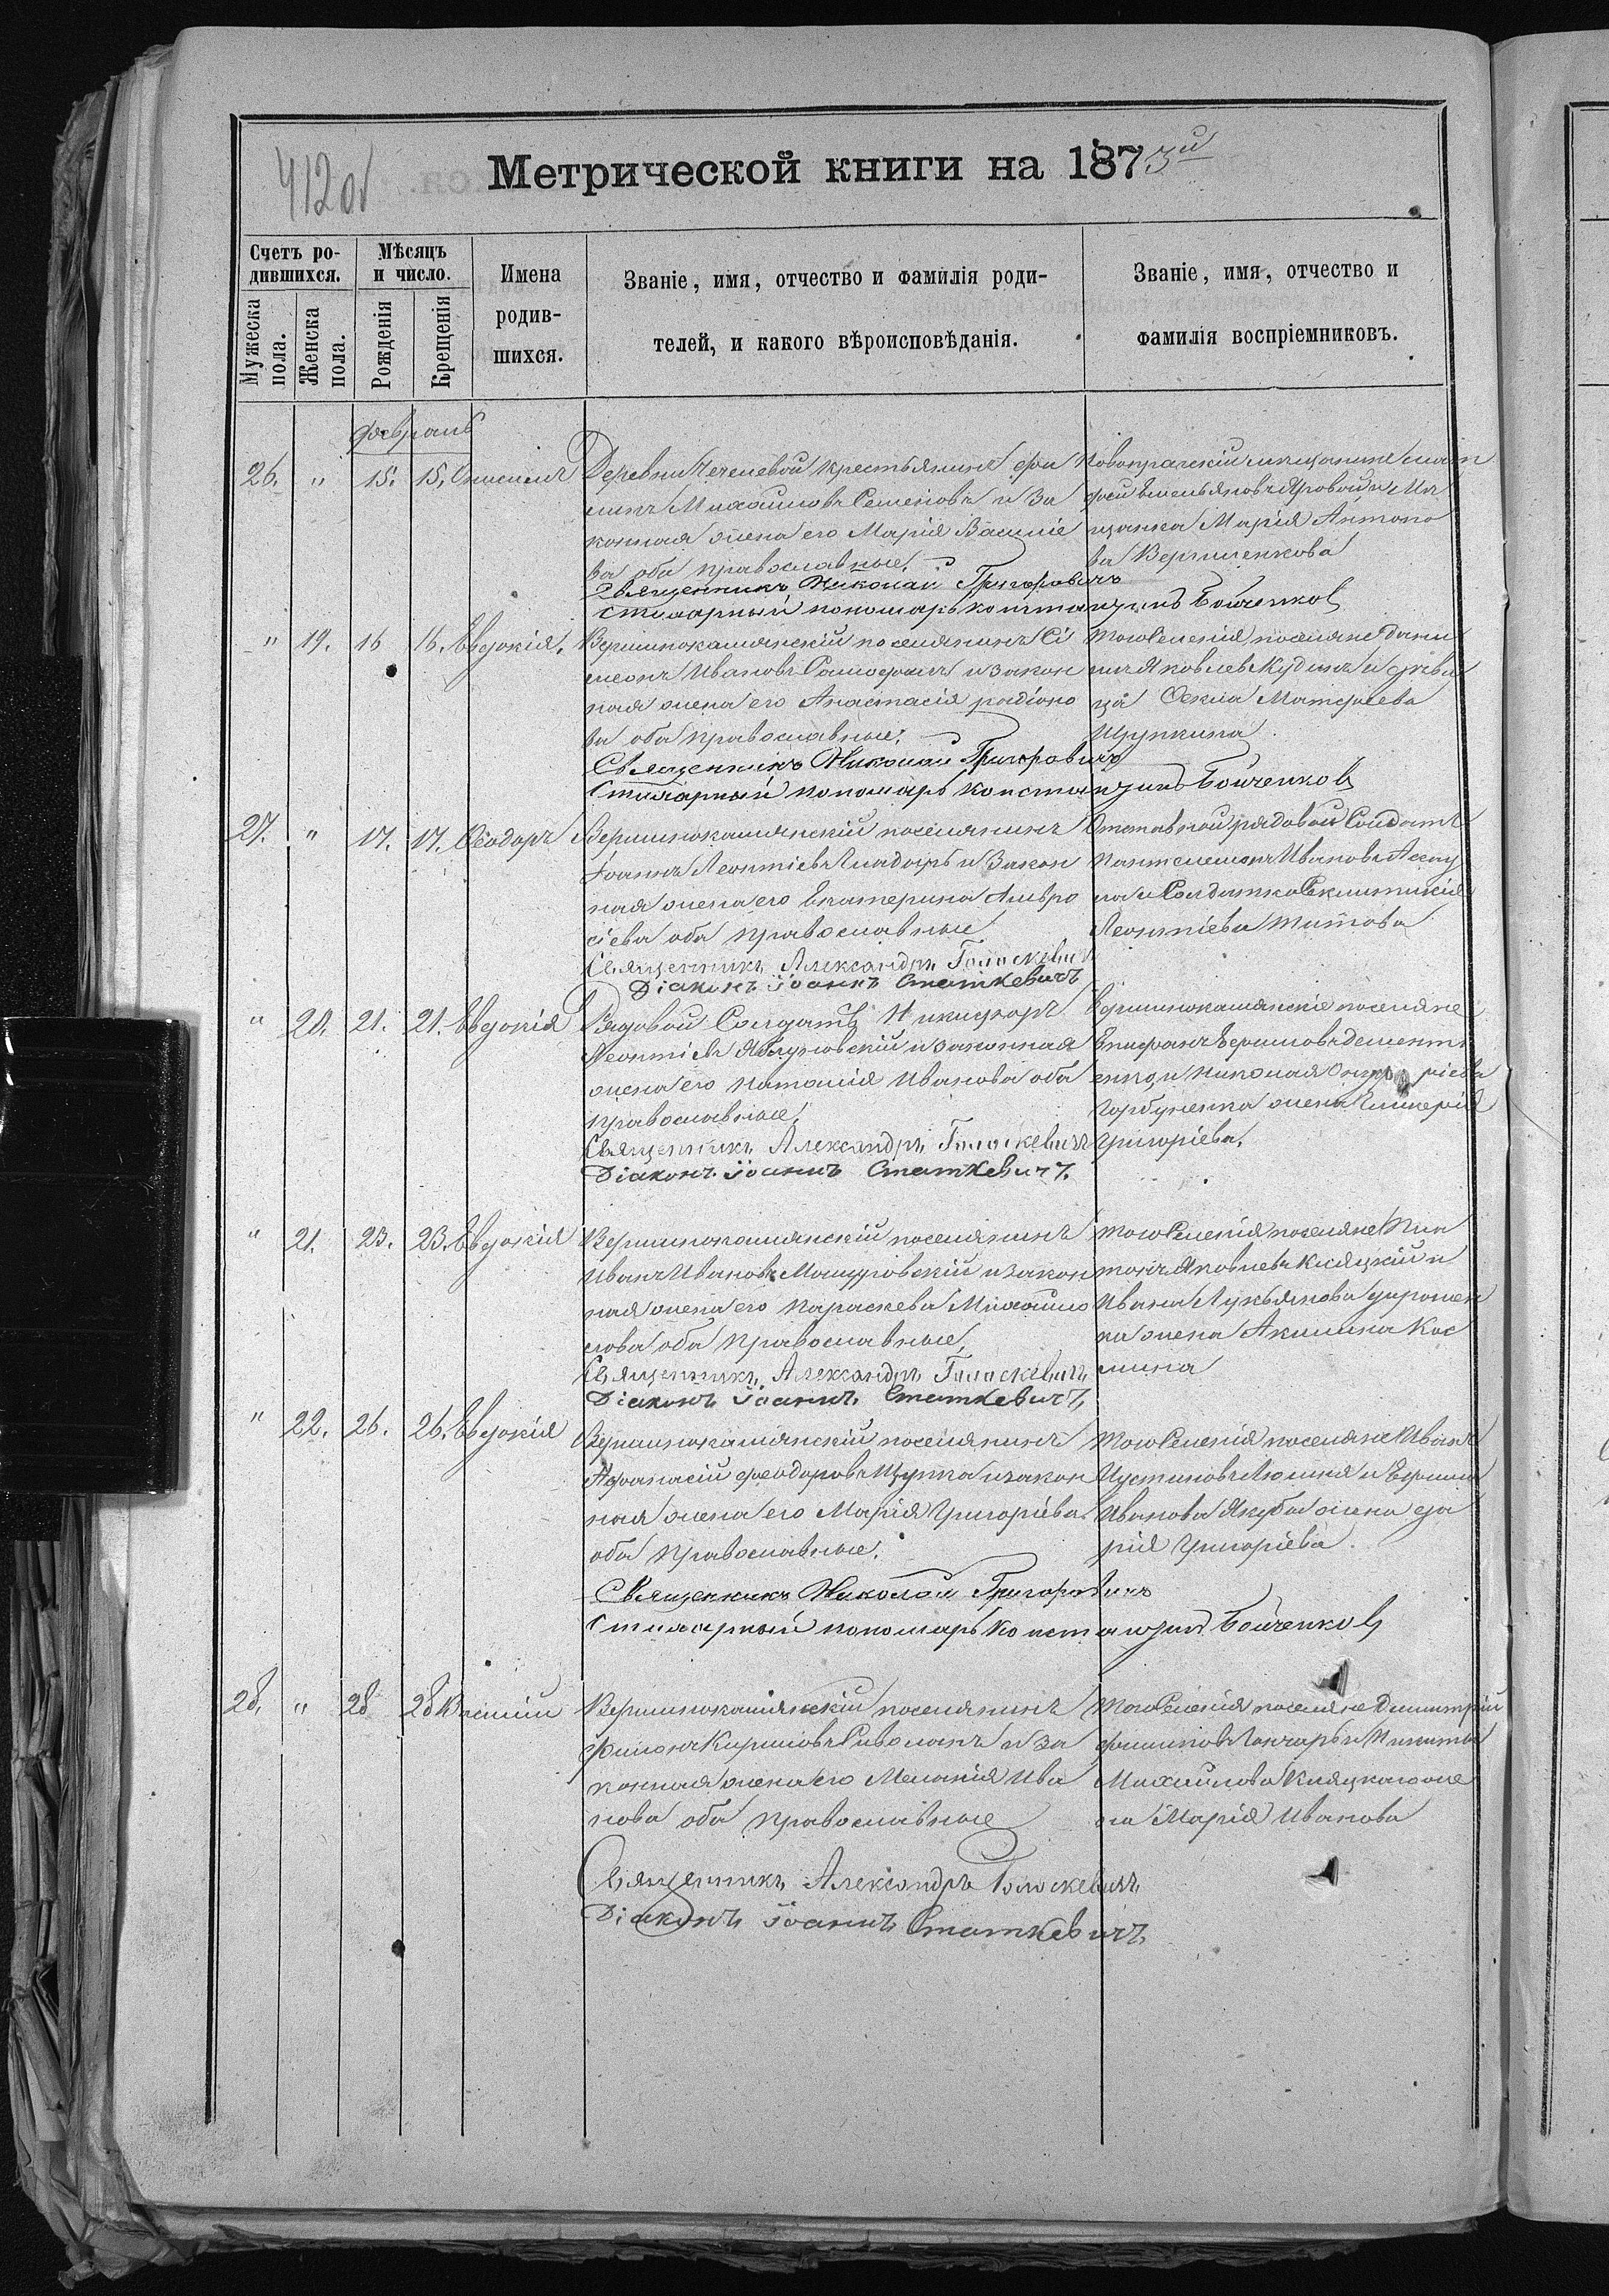 412об
Метрической книги на 1873й
Счетъ ро-
дившихся.
Мѣсяцъ
и число.
Имена
родив-
шихся.
Званіе, имя, отчество и фамилія роди-
телей, и какого вѣроисповѣданія.
Званіе, имя, отчество и
фамилія воспріемниковъ.
Мужеска
пола.
Женска
пола.
Рожденія
Крещенія
Февраль
26. " 15. 15. Онисимъ
Деревни крестьянинъ Фи
липъ Михаиловъ Семеновъ и за
конная жена его Марія Василіе
ва оба православные.
Священникъ Николай Григоровичъ
Стихарный пономарь Константинъ Бойченковъ
Новопражскій мѣщанинъ
Яровой и Мѣ
щанка Марія Антоно
ва Вертиленкова
" 19. 16 16. Евдокія.
Вершинокамянскій поселянинъ Сі
меонъ Ивановъ и закон
ная жена его Анастасія Родіоно
ва оба православные.
Священникъ Николай Григоровичъ
Стихарный пономарь Константинъ Бойченковъ
Того Селенія поселяне Дани
илъ Яковлевъ Кудинъ и дѣви
ца Фекла Матфеева
Щупкина
27. " 17. 17. Ѳеодоръ
Вершинокамянскій поселянинъ
Іоаннъ Леонтіевъ и закон
ная жена его Екатерина Амвро
сіева оба православные
Священникъ Александръ Голоскевичъ
Діаконъ Іоаннъ Статкевичъ
Отставной рядовой Солдатъ
Пантелемонъ Ивановъ
и Солдатка
Леонтіева Титова
" 20. 21. 21. Евдокія
Рядовой Солдатъ Никифоръ
Леонтіевъ Яблуновскій и законная
жена его Наталія Иванова оба
православные.
Священникъ Александръ Голоскевичъ
Діаконъ Іоаннъ Статкевичъ.
Вершинокамянскіе поселяне
Епифанъ Ефимовъ Демент
енко, и Николая
Горбуненка жена Гликерія
Григоріева.
" 21. 23. 23. Евдокія
Вершинокамянскій поселянинъ
Иванъ Ивановъ Мошуровскій и закон
ная жена его Параскева Михаило
лова оба православные,
Священникъ Александръ Голоскевичъ
Діаконъ Іоаннъ Статкевичъ,
Того Селенія поселяне Пла
тонъ Яковлевъ Кисляцкій и
Ивана Лукьянова
ка жена Акилина Кос
мина
" 22. 26. 26. Евдокія
Вершинокамянскій поселянинъ
Афанасій Феодоровъ Щупка и закон
ная жена его Марія Григоріева
оба православные.
Священникъ Николай Григоровичъ
Стихарный пономарь Константинъ Бойченковъ
Того Селенія поселяне Иванъ
Иустиновъ и Ефима
Иванова Якуба жена Да
рія Григоріева.
28. " 28 28 Василій
Вершинокамянскій поселянинъ
Филонъ Кириловъ Сиволапъ и за
конная жена его Меланія Ива
нова оба православные
Священникъ Александръ Голоскевичъ
Діаконъ Іоаннъ Статкевичъ,
Того Селенія поселяне Димитрій
Филиповъ Гончаръ и Никиты
Михайлова Кисляцкаго же
на Марія Иванова